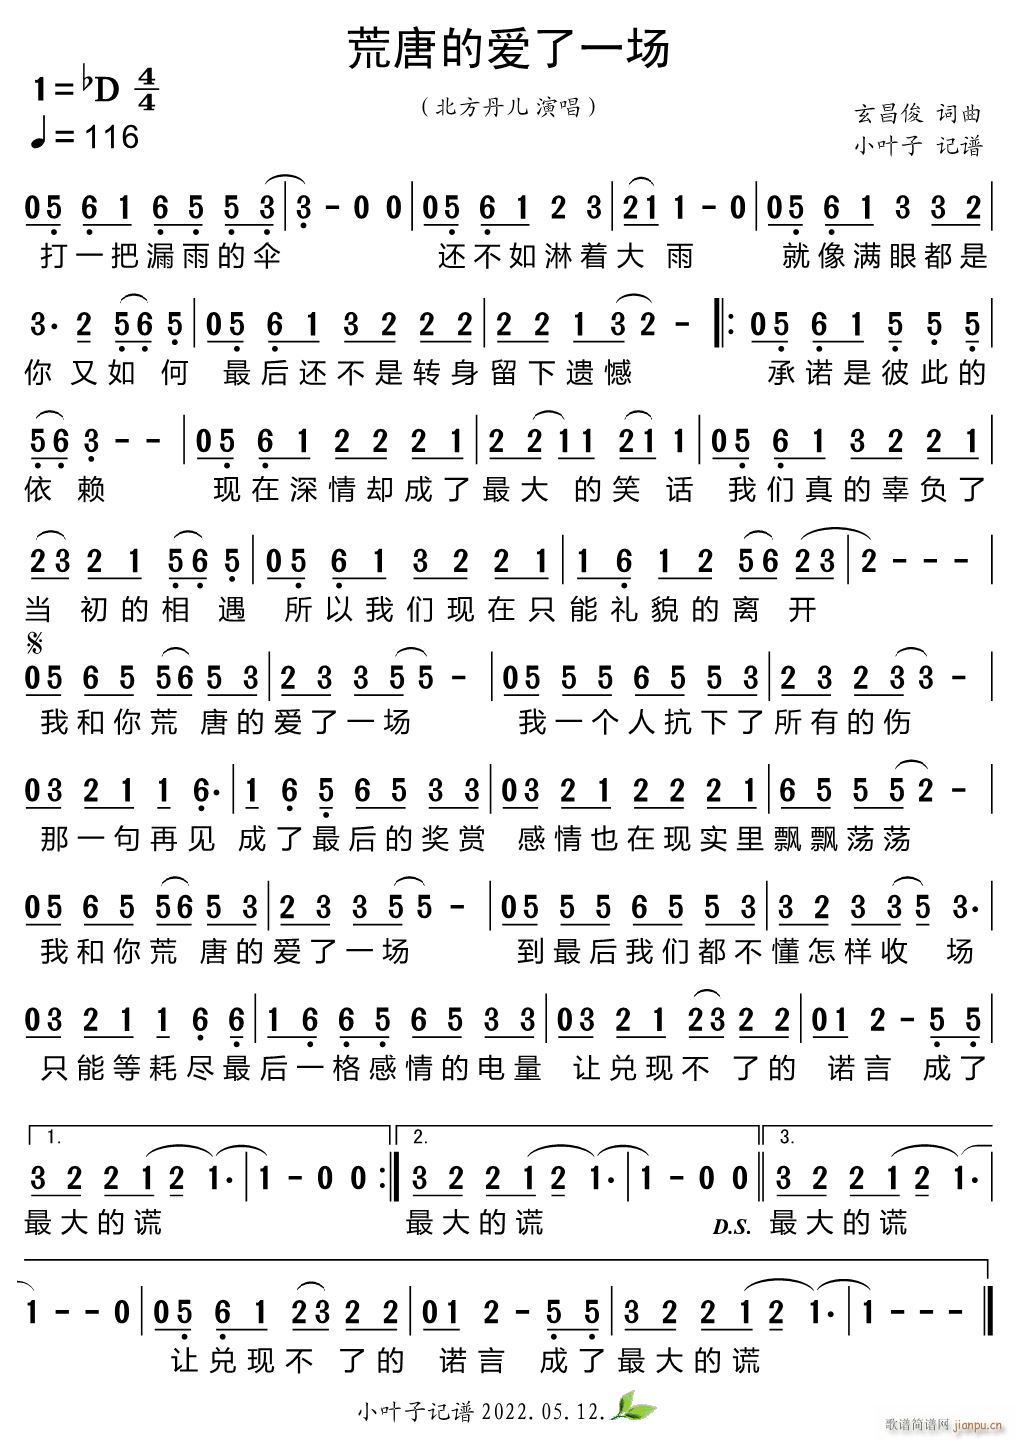 荒唐的爱了一场
1=♭D 4/4
（北方丹儿 演唱）
玄昌俊 词曲
♩=116
小叶子 记谱
05 6 1 6 5 5 3|3 - 0 0|05 6 1 2 3|21 1 - 0|05 6 1 3 3 2|
打一把漏雨的伞 还不如淋着大 雨 就像满眼都是
3· 2 56 5|05 6 1 3 2 2 2|2 2 1 32 -‖:05 6 1 5 5 5|
你 又如 何 最后还不是转身留下遗憾 承诺是彼此的
56 3 - -|05 6 1 2 2 2 1|2 211 21 1|05 6 1 3 2 2 1|
依 赖 现在深情却成了最大 的笑 话 我们真的辜负了
23 2 1 56 5|05 6 1 3 2 2 1|1 6 1 2 56 23|2 - - -|
当 初的相 遇 所以我们现在只能礼貌的离 开
𝄋
05 6 5 56 5 3|2 3 3 55 -|05 5 5 6 5 5 3|2 3 2 33 -|
我和你荒 唐的爱了一场 我一个人抗下了所有的伤
03 2 1 1 6·|1 6 5 6 5 3 3|03 2 1 2 2 2 1|6 5 5 52 -|
那一句再见 成了最后的奖赏 感情也在现实里飘飘荡荡
05 6 5 56 5 3|2 3 3 55 -|05 5 5 6 5 5 3|3 2 3 35 3·|
我和你荒 唐的爱了一场 到最后我们都不懂怎样收 场
03 2 1 1 6 6|1 6 6 5 6 5 3 3|03 2 1 23 2 2|01 2 - 5 5|
只能等耗尽最后一格感情的电量 让兑现不 了的 诺言 成了
1. 2. 3.
3 2 2 1 2 1·|1 - 0 0:‖3 2 2 1 2 1·|1 - 0 0‖3 2 2 1 2 1·|
最大的谎 最大的谎 D.S. 最大的谎
1 - - 0|05 6 1 23 2 2|01 2 - 5 5|3 2 2 1 2 1·|1 - - -‖
让兑现不 了的 诺言 成了最大的谎
小叶子记谱 2022.05.12.
歌谱简谱网
jianpu.cn